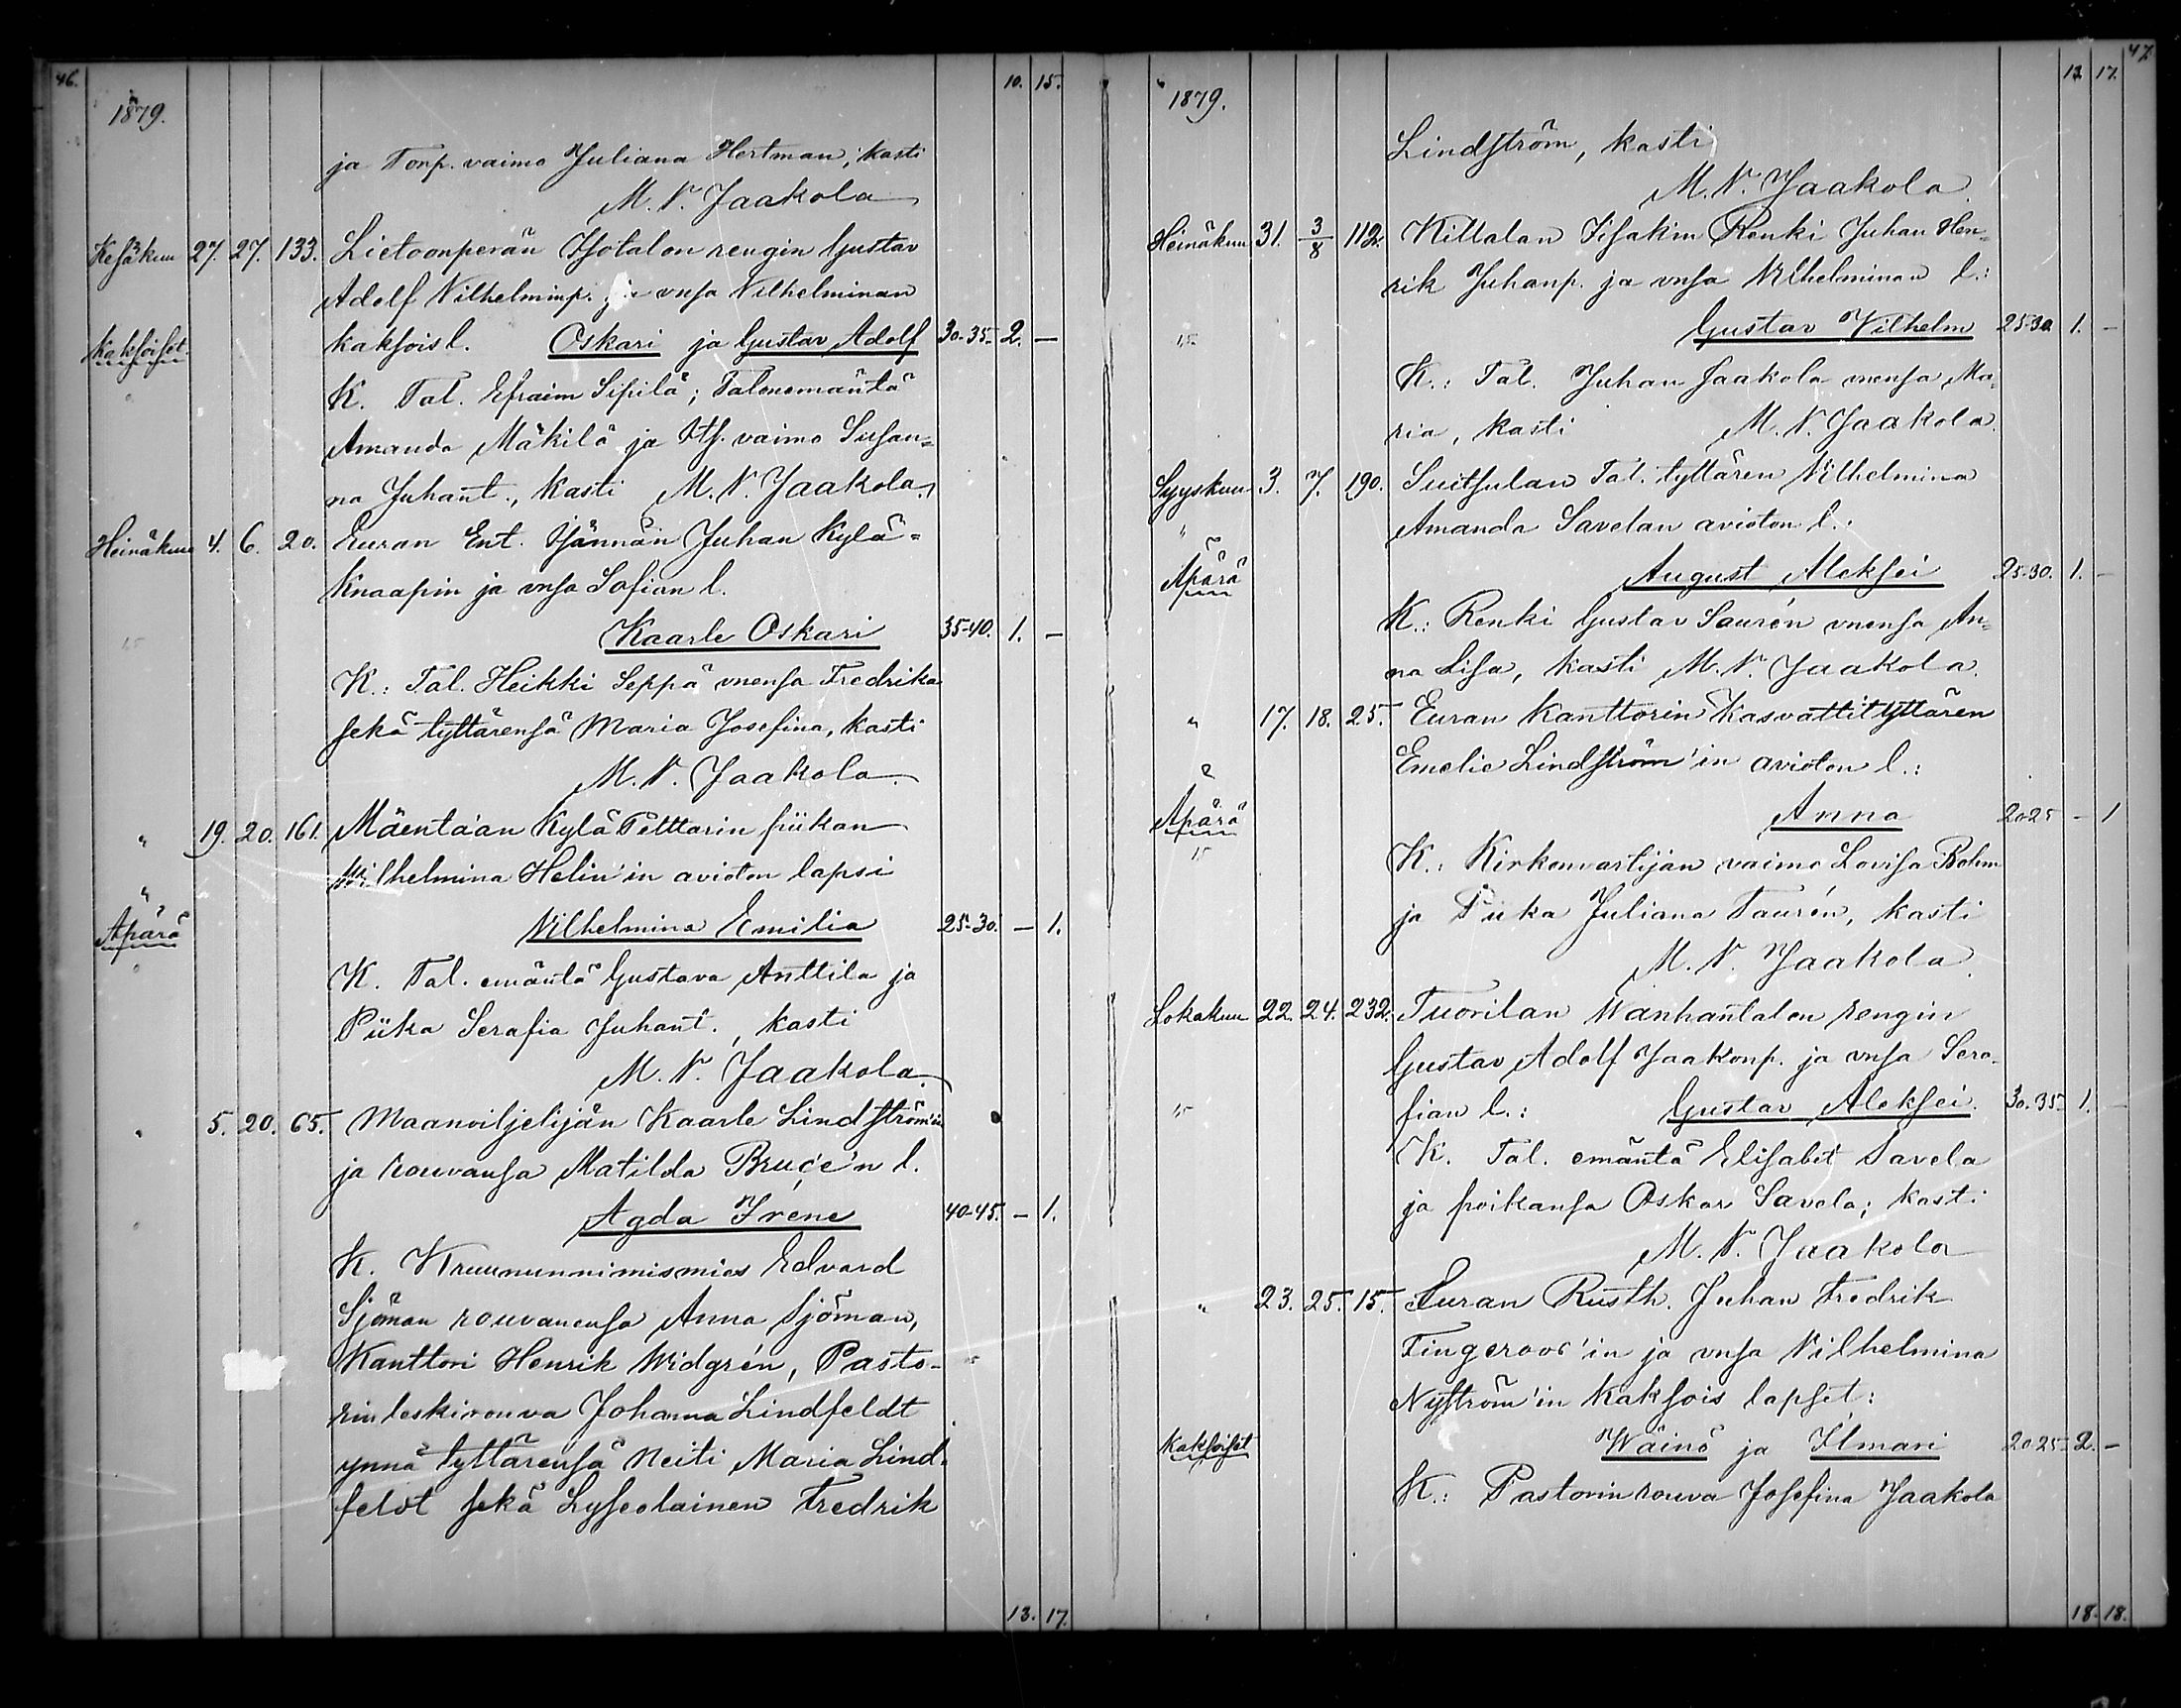 46.
1879.
10. 15.
ja Torp. vaimo Juliana Hertman; kasti
M. V. Jaakola
Kesäkuu 27. 27. 133. Lietoonperän Isotalon rengin Gustav
Adolf Vilhelminp. ja vnsa Vilhelminan
Kaksoiset kaksois l. Oskari ja Gustav Adolf 30-35. 2. —
K. Tal. Efraim Sipilä; Talonemäntä
Amanda Mäkilä ja Its. vaimo Susan-
na Juhant., kasti M. V. Jaakola.
Heinäkuu 4. 6. 20. Euran Ent. Isännän Juhan Kylä-
Knaapin ja vnsa Sofian l.
Kaarle Oskari 35-40. 1. —
K.: Tal. Heikki Seppä vnensa Fredrika
sekä tyttärensä Maria Josefina, kasti
M. V. Jaakola.
" 19. 20. 161. Mäentaan Kylä Pelttarin piikan
Wilhelmina Helin'in avioton lapsi
Äpärä Vilhelmina Emilia 25-30. — 1.
K. Tal. emäntä Gustava Anttila ja
Piika Serafia Juhant., kasti
M. V. Jaakola.
" 5. 20. 65. Maanviljelijän Kaarle Lindström'in
ja rouvansa Matilda Bruce'n l.
Agda Irene 40-45. — 1.
K. Kruununnimismies Edvard
Sjöman rouvanensa Anna Sjöman,
Kanttori Henrik Widgrén, Pasto-
rin leskirouva Johanna Lindfeldt
ynnä tyttärensä Neiti Maria Lind-
feldt sekä Lyseolainen Fredrik
13. 17.
47.
1879.
13. 17.
Lindström, kasti
M. V. Jaakola.
Heinäkuu 31. 3/8 112. Kittalan Iisakin Renki Juhan Hen-
rik Juhanp. ja vnsa Vilhelminan l.:
Gustav Vilhelm 25-30. 1. —
K.: Tal. Juhan Jaakola vnensa Ma-
ria, kasti M. V. Jaakola.
Syyskuu 3. 7. 190. Suitsulan Tal. tyttären Vilhelmina
" Amanda Savelan avioton l.:
Äpärä August Aleksei 25-30. 1. —
K.: Renki Gustav Saurén vnensa An-
na Lisa, kasti M. V. Jaakola.
" 17. 18. 25. Euran Kanttorin Kasvattityttären
Emelie Lindström'in avioton l.:
Äpärä Anna 20-25 — 1
K.: Kirkonvartijan vaimo Lovisa Bohm
ja Piika Juliana Taurén, kasti
M. V. Jaakola.
Lokakuu 22. 24. 232. Tuorilan Wanhantalon rengin
Gustav Adolf Jaakonp. ja vnsa Sera-
fian l.: Gustav Aleksei. 30-35. 1. —
K. Tal. emäntä Elisabet Savela
ja poikansa Oskar Savela; kasti
M. V. Jaakola
" 23. 25. 15. Euran Rusth. Juhan Fredrik
Fingeroos'in ja vnsa Vilhelmina
Nyström'in kaksois lapset:
Kaksoiset Wäinö ja Ilmari 20-25. 2. —
K.: Pastorin rouva Josefina Jaakola
18. 18.